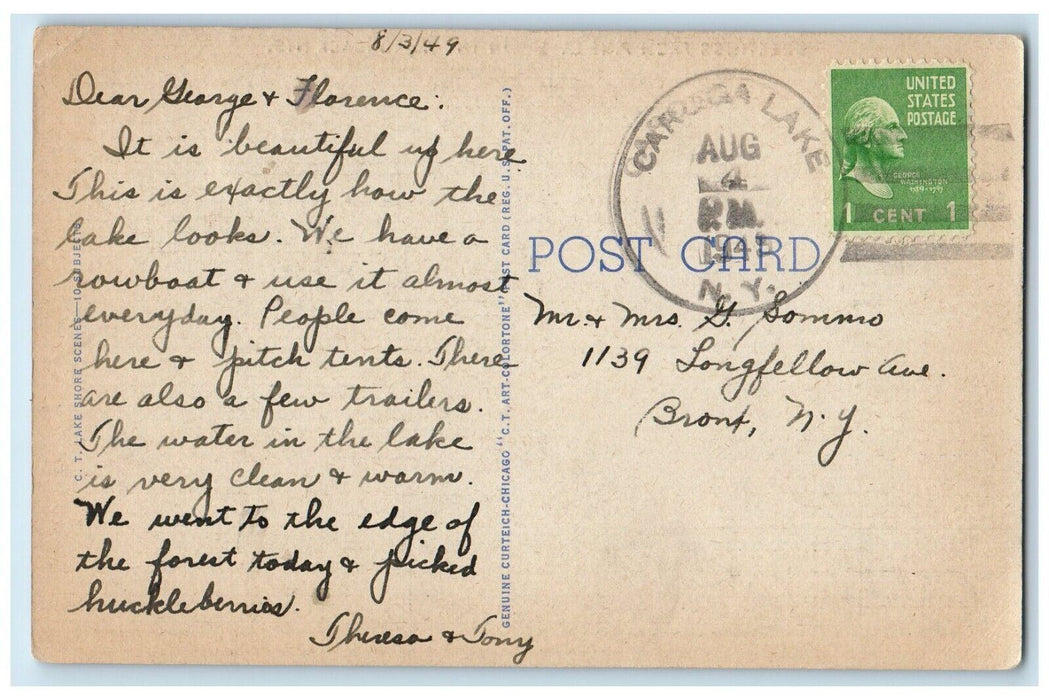 8/3/49
Dear George & Florence:
It is beautiful up here
This is exactly how the
lake looks. We have a
rowboat & use it almost
everyday. People come
here & pitch tents. There
are also a few trailers.
The water in the lake
is very clean & warm.
We went to the edge of
the forest today & picked
huckleberries.
Theresa & Tony
C. T. LAKE SHORE SCENES—10 SUBJECTS
GENUINE CURTEICH-CHICAGO "C. T. ART-COLORTONE" POST CARD (REG. U. S. PAT. OFF.)
CAROGA LAKE
AUG
4
P.M.
N. Y.
UNITED
STATES
POSTAGE
GEORGE
WASHINGTON
1789-1797
1 CENT 1
POST CARD
Mr. & Mrs. G. Sommo
1139 Longfellow Ave.
Bronx, N.Y.